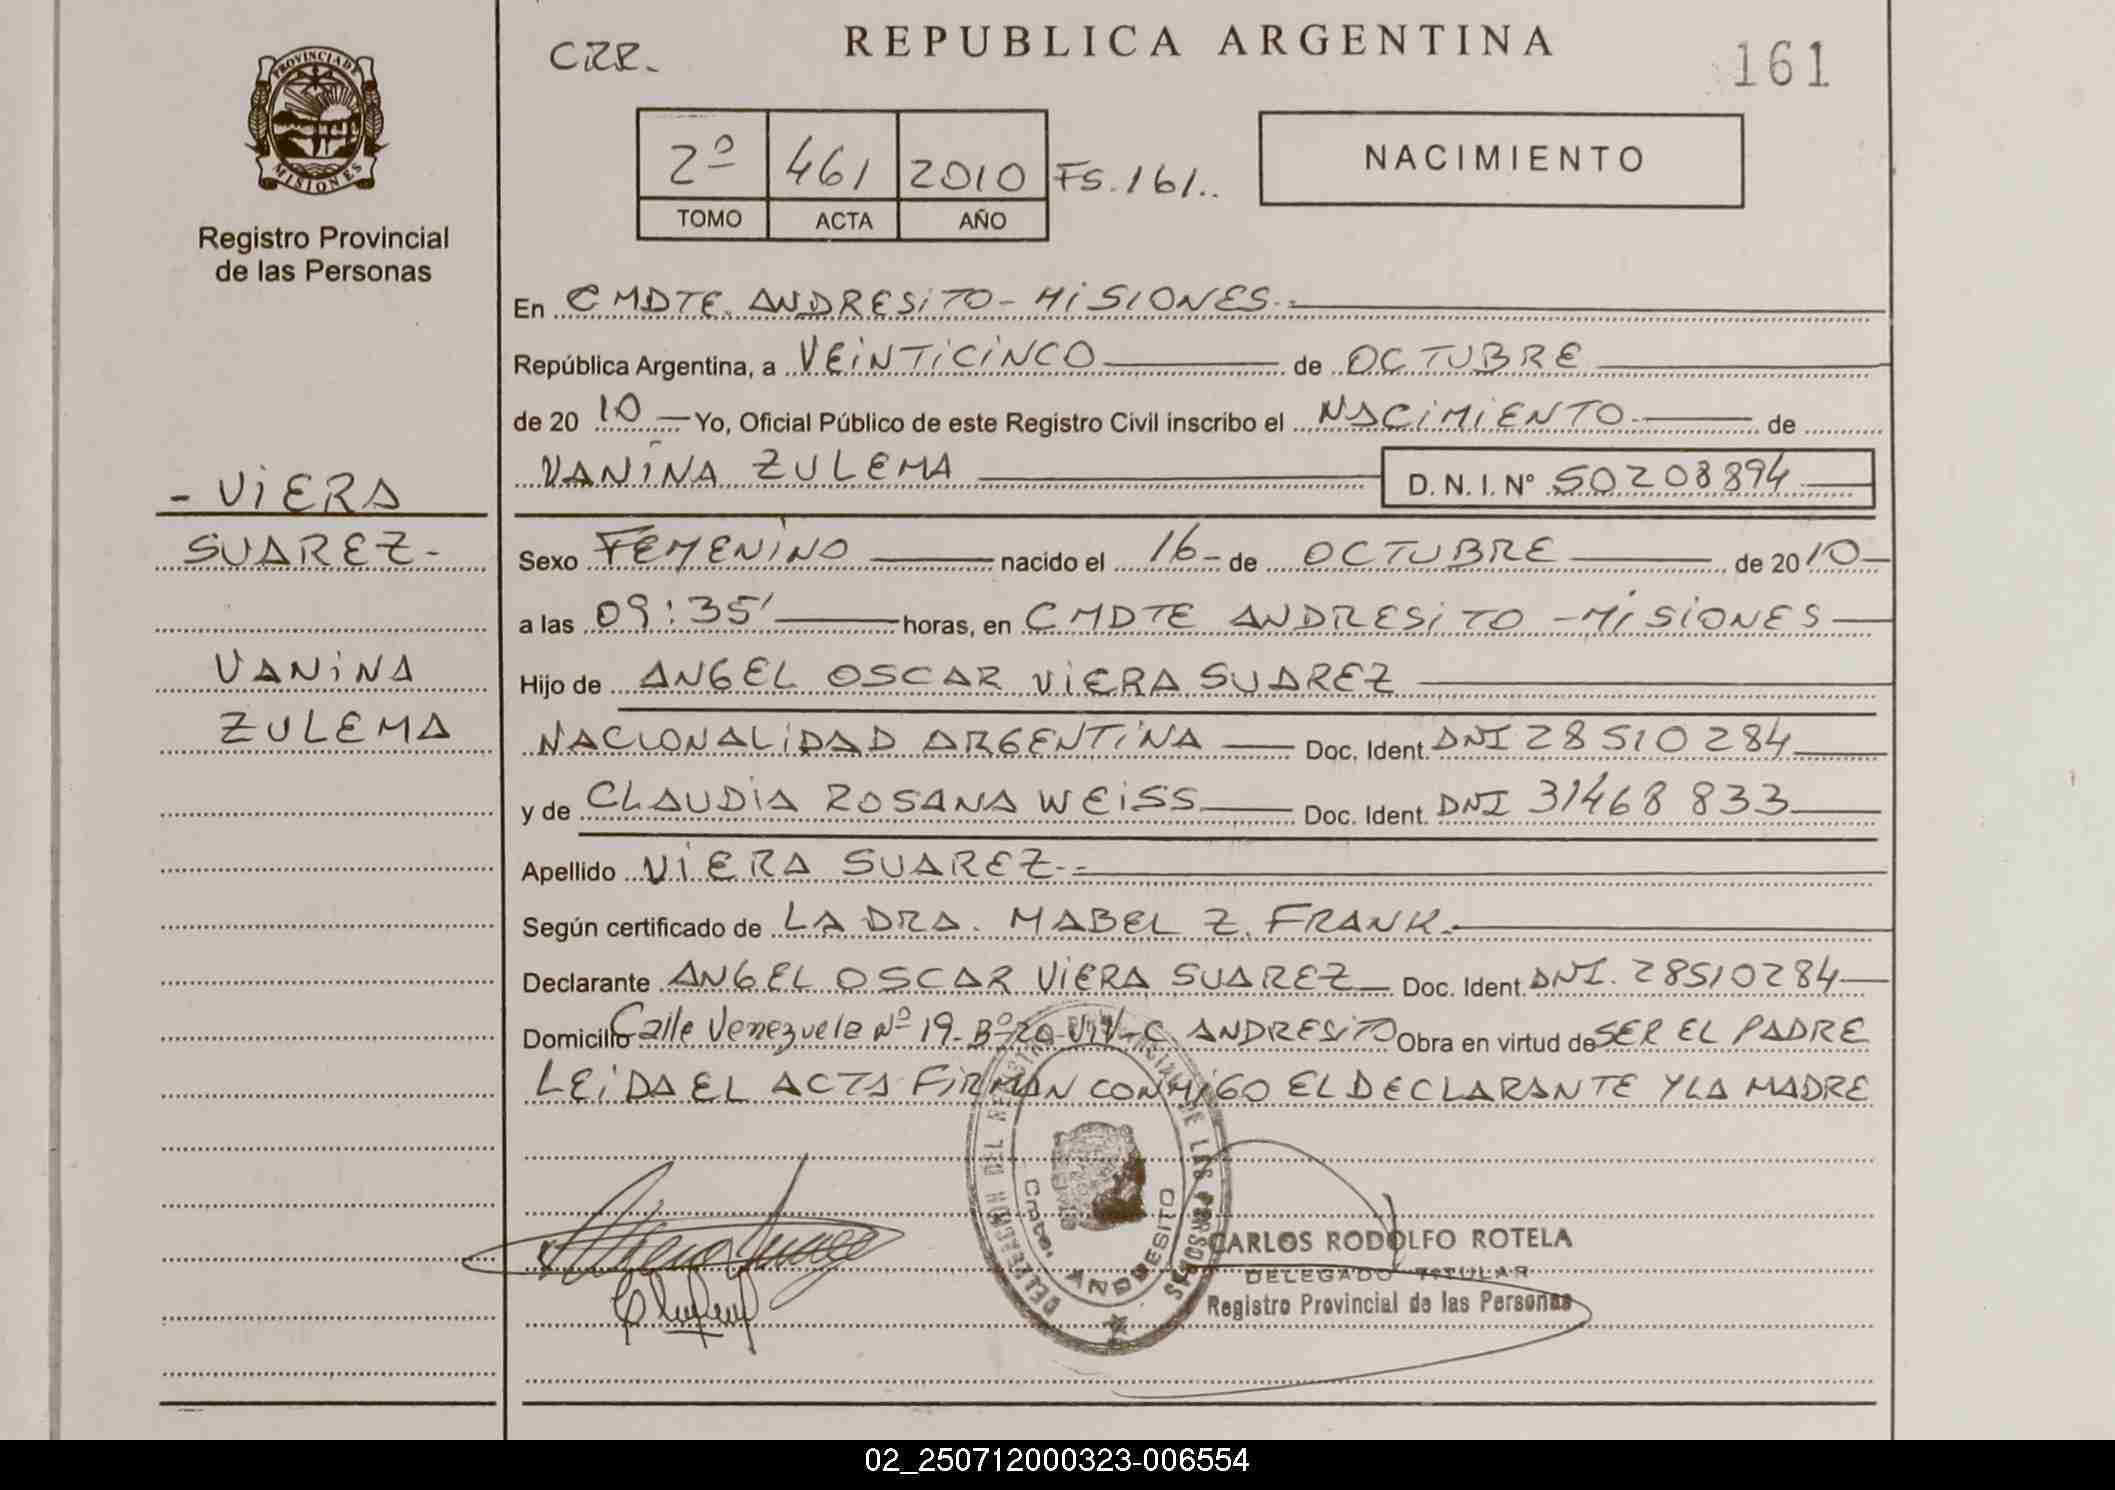 CRR.
REPUBLICA ARGENTINA
161
PROVINCIA DE
MISIONES
Registro Provincial
de las Personas
2º 461 2010 FS. 161..
TOMO ACTA AÑO
NACIMIENTO
En CMDTE. ANDRESiTO - MiSIONES.-
República Argentina, a VEiNTiCiNCO de OCTUBRE
de 20 10 Yo, Oficial Público de este Registro Civil inscribo el NACiMiENTO de
VANiNA ZULEMA D. N. I. N° 50208894
- ViERA
SUAREZ-
VANiNA
ZULEMA
Sexo FEMENiNO nacido el 16 de OCTUBRE de 2010
a las 09:35' horas, en CMDTE ANDRESiTO - MiSiONES
Hijo de ANGEL OSCAR ViERA SUAREZ
NACiONALiDAD ARGENTiNA Doc. Ident. DNI 28510284
y de CLAUDiA ROSANA WEiSS Doc. Ident. DNI 31468833
Apellido ViERA SUAREZ--
Según certificado de LA DRA. MABEL Z. FRANK.
Declarante ANGEL OSCAR ViERA SUAREZ Doc. Ident. DNI. 28510284
Domicilio Calle Venezuela Nº 19- Bº 20 ViV- C. ANDRESiTO Obra en virtud de SER EL PADRE
LEiDA EL ACTA FiRMAN CONMiGO EL DECLARANTE Y LA MADRE
DELEGACION DEL REGISTRO PROVINCIAL DE LAS PERSONAS
Cmte. ANDRESITO
CARLOS RODOLFO ROTELA
DELEGADO TITULAR
Registro Provincial de las Personas
02_250712000323-006554